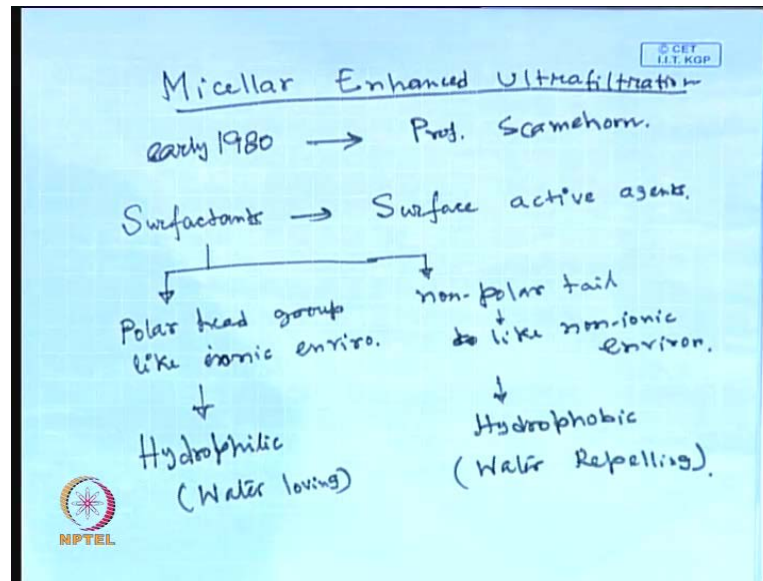 © CET
I.I.T. KGP
Micellar Enhanced Ultrafiltration
early 1980 → Prof. Scamehorn.
Surfactants → Surface active agents.
Polar head group
like ionic enviro.
↓
Hydrophilic
(Water loving)
non-polar tail
↓
like non-ionic
environ.
↓
Hydrophobic
(Water Repelling).
NPTEL